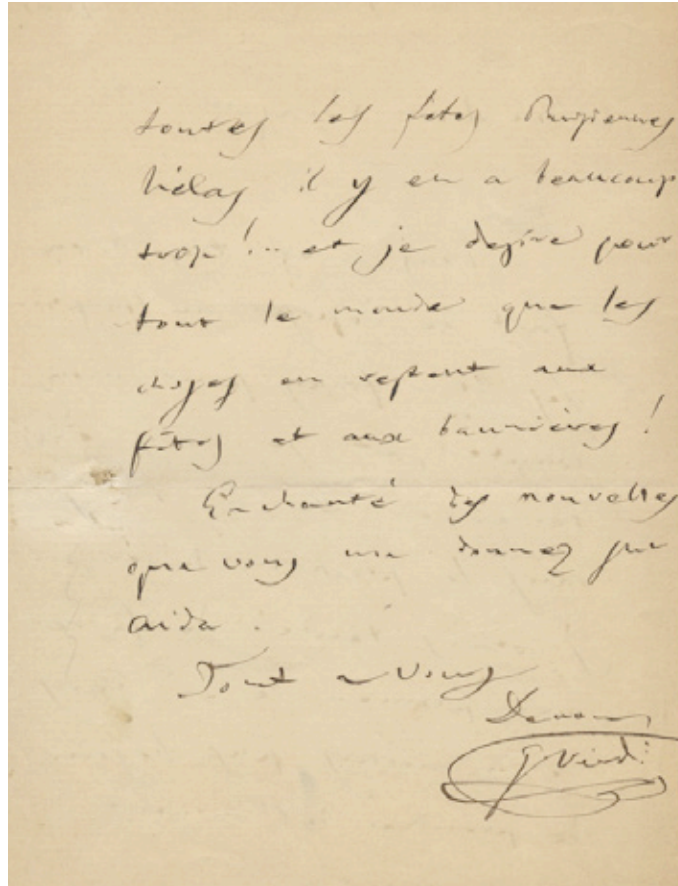 toutes les fêtes Parisiennes
hélas il y en a beaucoup
trop!.. et je desire pour
tout le monde que les
choses en restent aux
fêtes et aux bannières!
Enchanté des nouvelles
que vous me donnez sur
Aida.
Tout a Vous
G Verdi